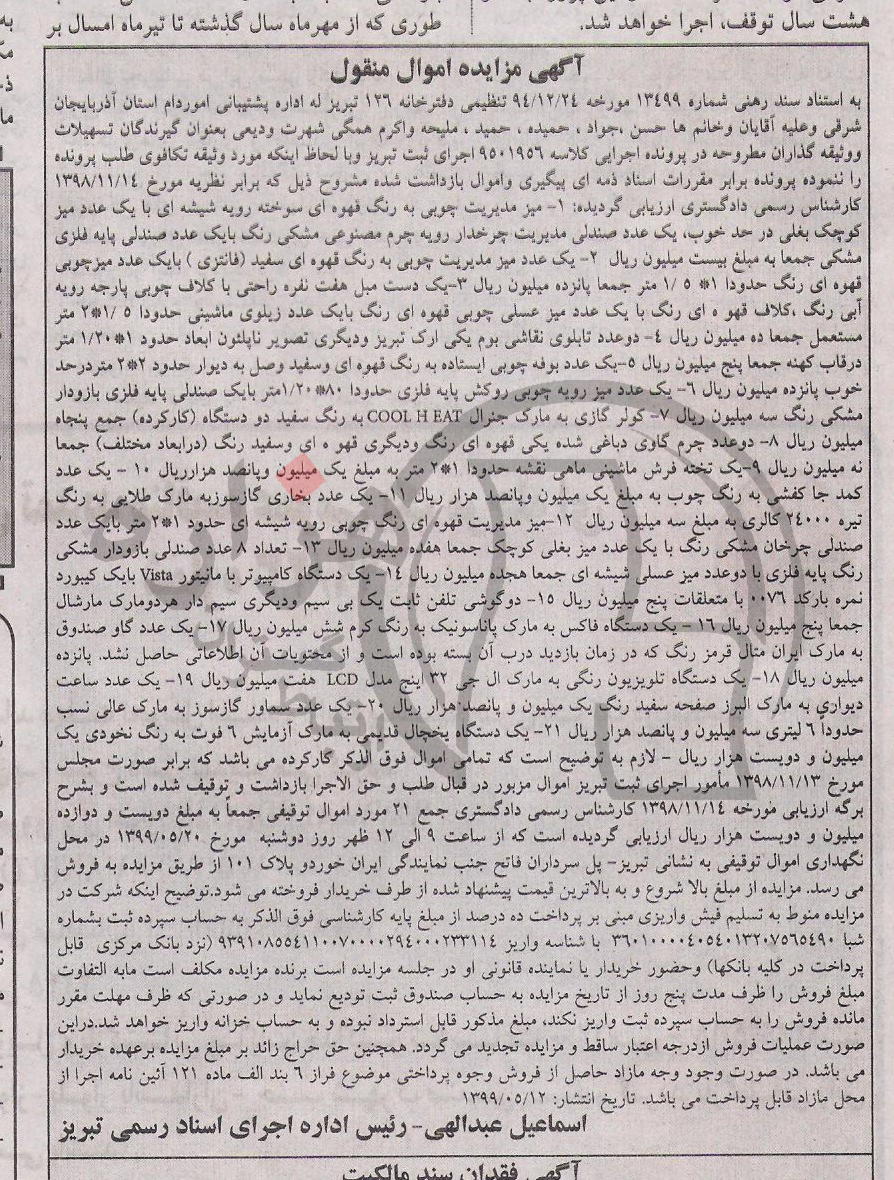 هشت سال توقف، اجرا خواهد شد.
طوری که از مهرماه سال گذشته تا تیرماه امسال بر
آگهی مزایده اموال منقول
به استناد سند رهنی شماره ۱۳۴۹۹ مورخه ۹۴/۱۲/۲۴ تنظیمی دفترخانه ۱۳۶ تبریز له اداره پشتیبانی اموردام استان آذربایجان
شرقی وعلیه آقایان وخانم ها حسن ،جواد ، حمیده ، حمید ، ملیحه واکرم همگی شهرت ودیعی بعنوان گیرندگان تسهیلات
ووثیقه گذاران مطروحه در پرونده اجرایی کلاسه ۹۵۰۱۹۵۶ اجرای ثبت تبریز وبا لحاظ اینکه مورد وثیقه تکافوی طلب پرونده
را ننموده پرونده برابر مقررات اسناد ذمه ای پیگیری واموال بازداشت شده مشروح ذیل که برابر نظریه مورخ ۱۳۹۸/۱۱/۱۴
کارشناس رسمی دادگستری ارزیابی گردیده: ۱- میز مدیریت چوبی به رنگ قهوه ای سوخته رویه شیشه ای با یک عدد میز
کوچک بغلی در حد خوب، یک عدد صندلی مدیریت چرخدار رویه چرم مصنوعی مشکی رنگ بایک عدد صندلی پایه فلزی
مشکی جمعا به مبلغ بیست میلیون ریال ۲- یک عدد میز مدیریت چوبی به رنگ قهوه ای سفید (فانتزی ) بایک عدد میزچوبی
قهوه ای رنگ حدودا ۱* ۱/۵ متر جمعا پانزده میلیون ریال ۳-یک دست مبل هفت نفره راحتی با کلاف چوبی پارچه رویه
آبی رنگ ،کلاف قهو ه ای رنگ با یک عدد میز عسلی چوبی قهوه ای رنگ بایک عدد زیلوی ماشینی حدودا ۱/۵*۲ متر
مستعمل جمعا ده میلیون ریال ۴- دوعدد تابلوی نقاشی بوم یکی ارک تبریز ودیگری تصویر ناپلئون ابعاد حدود ۱*۱/۲۰ متر
درقاب کهنه جمعا پنج میلیون ریال ۵-یک عدد بوفه چوبی ایستاده به رنگ قهوه ای وسفید وصل به دیوار حدود ۲*۲ متردرحد
خوب پانزده میلیون ریال ۶- یک عدد میز رویه چوبی روکش پایه فلزی حدودا ۸۰*۱/۲۰متر بایک صندلی پایه فلزی بازودار
مشکی رنگ سه میلیون ریال ۷- کولر گازی به مارک جنرال COOL H EAT به رنگ سفید دو دستگاه (کارکرده) جمع پنجاه
میلیون ریال ۸- دوعدد چرم گاوی دباغی شده یکی قهوه ای رنگ ودیگری قهو ه ای وسفید رنگ (درابعاد مختلف) جمعا
نه میلیون ریال ۹-یک تخته فرش ماشینی ماهی نقشه حدودا ۱*۲ متر به مبلغ یک میلیون وپانصد هزارریال ۱۰ - یک عدد
کمد جا کفشی به رنگ چوب به مبلغ یک میلیون وپانصد هزار ریال ۱۱- یک عدد بخاری گازسوزبه مارک طلایی به رنگ
تیره ۲۴۰۰۰ کالری به مبلغ سه میلیون ریال ۱۲-میز مدیریت قهوه ای رنگ چوبی رویه شیشه ای حدود ۱*۲ متر بایک عدد
صندلی چرخان مشکی رنگ با یک عدد میز بغلی کوچک جمعا هفده میلیون ریال ۱۳- تعداد ۸ عدد صندلی بازودار مشکی
رنگ پایه فلزی با دوعدد میز عسلی شیشه ای جمعا هجده میلیون ریال ۱۴- یک دستگاه کامپیوتر با مانیتور Vista بایک کیبورد
نمره بارکد ۰۰۷۶ با متعلقات پنج میلیون ریال ۱۵- دوگوشی تلفن ثابت یک بی سیم ودیگری سیم دار هردومارک مارشال
جمعا پنج میلیون ریال ۱۶ - یک دستگاه فاکس به مارک پاناسونیک به رنگ کرم شش میلیون ریال ۱۷- یک عدد گاو صندوق
به مارک ایران مثال قرمز رنگ که در زمان بازدید درب آن بسته بوده است و از محتویات آن اطلاعاتی حاصل نشد. پانزده
میلیون ریال ۱۸- یک دستگاه تلویزیون رنگی به مارک ال جی ۳۲ اینچ مدل LCD هفت میلیون ریال ۱۹- یک عدد ساعت
دیواری به مارک البرز صفحه سفید رنگ یک میلیون و پانصد هزار ریال ۲۰- یک عدد سماور گازسوز به مارک عالی نسب
حدوداً ۶ لیتری سه میلیون و پانصد هزار ریال ۲۱- یک دستگاه یخچال قدیمی به مارک آزمایش ۶ فوت به رنگ نخودی یک
میلیون و دویست هزار ریال - لازم به توضیح است که تمامی اموال فوق الذکر کارکرده می باشد که برابر صورت مجلس
مورخ ۱۳۹۸/۱۱/۱۳ مأمور اجرای ثبت تبریز اموال مزبور در قبال طلب و حق الاجرا بازداشت و توقیف شده است و بشرح
برگه ارزیابی مورخه ۱۳۹۸/۱۱/۱۴ کارشناس رسمی دادگستری جمع ۲۱ مورد اموال توقیفی جمعاً به مبلغ دویست و دوازده
میلیون و دویست هزار ریال ارزیابی گردیده است که از ساعت ۹ الی ۱۲ ظهر روز دوشنبه مورخ ۱۳۹۹/۰۵/۲۰ در محل
نگهداری اموال توقیفی به نشانی تبریز- پل سرداران فاتح جنب نمایندگی ایران خودرو پلاک ۱۰۱ از طریق مزایده به فروش
می رسد. مزایده از مبلغ بالا شروع و به بالاترین قیمت پیشنهاد شده از طرف خریدار فروخته می شود.توضیح اینکه شرکت در
مزایده منوط به تسلیم فیش واریزی مبنی بر پرداخت ده درصد از مبلغ پایه کارشناسی فوق الذکر به حساب سپرده ثبت بشماره
شبا ۳۶۰۱۰۰۰۰۴۰۵۴۰۱۳۲۰۷۵۶۵۴۹۰ با شناسه واریز ۹۳۹۱۰۸۵۵۴۱۱۰۰۷۰۰۰۰۲۹۴۰۰۰۲۳۳۱۱۴ (نزد بانک مرکزی قابل
پرداخت در کلیه بانکها) وحضور خریدار یا نماینده قانونی او در جلسه مزایده است برنده مزایده مکلف است مابه التفاوت
مبلغ فروش را ظرف مدت پنج روز از تاریخ مزایده به حساب صندوق ثبت تودیع نماید و در صورتی که ظرف مهلت مقرر
مانده فروش را به حساب سپرده ثبت واریز نکند، مبلغ مذکور قابل استرداد نبوده و به حساب خزانه واریز خواهد شد.دراین
صورت عملیات فروش ازدرجه اعتبار ساقط و مزایده تجدید می گردد. همچنین حق حراج زائد بر مبلغ مزایده برعهده خریدار
می باشد. در صورت وجود وجه مازاد حاصل از فروش وجوه پرداختی موضوع فراز ۶ بند الف ماده ۱۲۱ آئین نامه اجرا از
محل مازاد قابل پرداخت می باشد. تاریخ انتشار: ۱۳۹۹/۰۵/۱۲
اسماعیل عبدالهی- رئیس اداره اجرای اسناد رسمی تبریز
آگهی فقدان سند مالکیت